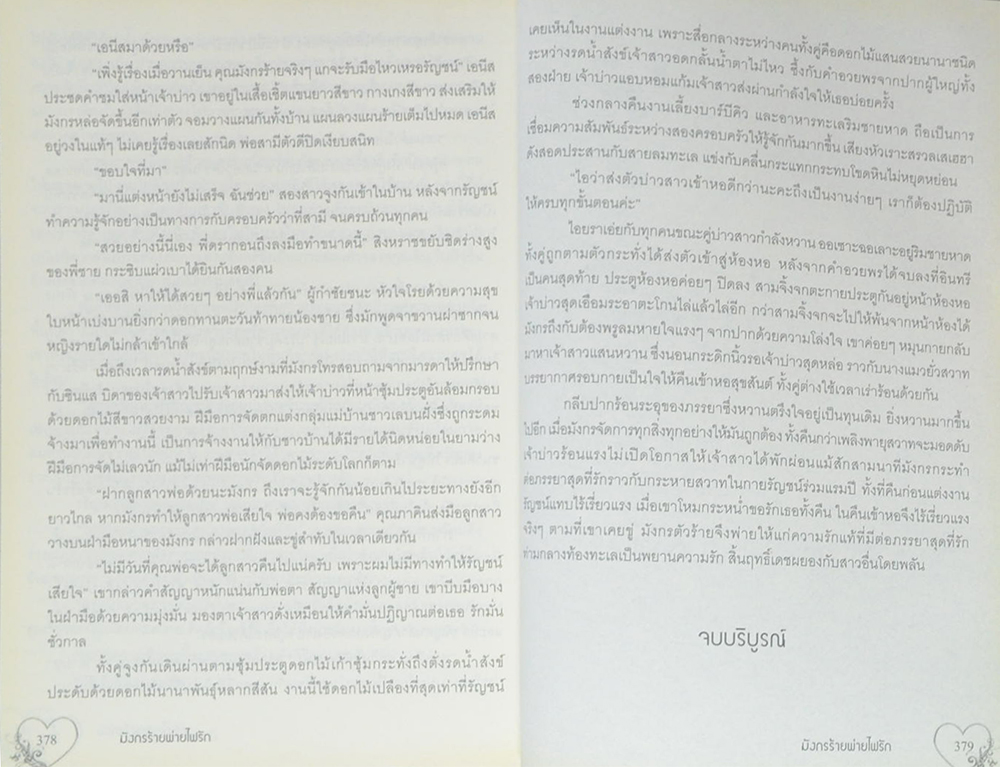 "เอนีสมาด้วยหรือ"
"เพิ่งรู้เรื่องเมื่อวานเย็น คุณมังกรร้ายจริงๆ แกจะรับมือไหวเหรอรัญชน์" เอนีส
ประชดคำชมใส่หน้าเจ้าบ่าว เขาอยู่ในเสื้อเชิ้ตแขนยาวสีขาว กางเกงสีขาว ส่งเสริมให้
มังกรหล่อจัดขึ้นอีกเท่าตัว จอมวางแผนกันทั้งบ้าน แผนลวงแผนร้ายเต็มไปหมด เอนีส
อยู่วงในแท้ๆ ไม่เคยรู้เรื่องเลยสักนิด พ่อสามีตัวดีปิดเงียบสนิท
"ขอบใจที่มา"
"มานี่แต่งหน้ายังไม่เสร็จ ฉันช่วย" สองสาวจูงกันเข้าในบ้าน หลังจากรัญชน์
ทำความรู้จักอย่างเป็นทางการกับครอบครัวว่าที่สามี จนครบถ้วนทุกคน
"สวยอย่างนี้นี่เอง พี่ดรากอนถึงลงมือทำขนาดนี้" สิงหราชขยับชิดร่างสูง
ของพี่ชาย กระซิบแผ่วเบาได้ยินกันสองคน
"เออสิ หาให้ได้สวยๆ อย่างพี่แล้วกัน" ผู้กำชัยชนะ หัวใจโรยด้วยความสุข
ใบหน้าเบ่งบานยิ่งกว่าดอกทานตะวันท้าทายน้องชาย ซึ่งมักพูดจาขวานผ่าซากจน
หญิงรายใดไม่กล้าเข้าใกล้
เมื่อถึงเวลารดน้ำสังข์ตามฤกษ์งามที่มังกรโทรสอบถามจากมารดาให้ปรึกษา
กับซินแส บิดาของเจ้าสาวไปรับเจ้าสาวมาส่งให้เจ้าบ่าวที่หน้าซุ้มประตูอันล้อมกรอบ
ด้วยดอกไม้สีขาวสวยงาม ฝีมือการจัดตกแต่งกลุ่มแม่บ้านชาวเลบนฝั่งซึ่งถูกระดม
จ้างมาเพื่อทำงานนี้ เป็นการจ้างงานให้กับชาวบ้านได้มีรายได้นิดหน่อยในยามว่าง
ฝีมือการจัดไม่เลวนัก แม้ไม่เท่าฝีมือนักจัดดอกไม้ระดับโลกก็ตาม
"ฝากลูกสาวพ่อด้วยนะมังกร ถึงเราจะรู้จักกันน้อยเกินไประยะทางยังอีก
ยาวไกล หากมังกรทำให้ลูกสาวพ่อเสียใจ พ่อคงต้องขอคืน" คุณภาคินส่งมือลูกสาว
วางบนฝ่ามือหนาของมังกร กล่าวฝากฝังและขู่สำทับในเวลาเดียวกัน
"ไม่มีวันที่คุณพ่อจะได้ลูกสาวคืนไปแน่ครับ เพราะผมไม่มีทางทำให้รัญชน์
เสียใจ" เขากล่าวคำสัญญาหนักแน่นกับพ่อตา สัญญาแห่งลูกผู้ชาย เขาบีบมือบาง
ในฝ่ามือด้วยความมุ่งมั่น มองตาเจ้าสาวดั่งเหมือนให้คำมั่นปฏิญาณต่อเธอ รักมั่น
ชั่วกาล
ทั้งคู่จูงกันเดินผ่านตามซุ้มประตูดอกไม้เก้าซุ้มกระทั่งถึงตั่งรดน้ำสังข์
ประดับด้วยดอกไม้นานาพันธุ์หลากสีสัน งานนี้ใช้ดอกไม้เปลืองที่สุดเท่าที่รัญชน์
378
มังกรร้ายพ่ายไฟรัก
เคยเห็นในงานแต่งงาน เพราะสื่อกลางระหว่างคนทั้งคู่คือดอกไม้แสนสวยนานาชนิด
ระหว่างรดน้ำสังข์เจ้าสาวอดกลั้นน้ำตาไม่ไหว ซึ้งกับคำอวยพรจากปากผู้ใหญ่ทั้ง
สองฝ่าย เจ้าบ่าวแอบหอมแก้มเจ้าสาวส่งผ่านกำลังใจให้เธอบ่อยครั้ง
ช่วงกลางคืนงานเลี้ยงบาร์บีคิว และอาหารทะเลริมชายหาด ถือเป็นการ
เชื่อมความสัมพันธ์ระหว่างสองครอบครัวให้รู้จักกันมากขึ้น เสียงหัวเราะสรวลเสเฮฮา
ดังสอดประสานกับสายลมทะเล แข่งกับคลื่นกระแทกกระทบโขดหินไม่หยุดหย่อน
"ไอว่าส่งตัวบ่าวสาวเข้าหอดีกว่านะคะถึงเป็นงานง่ายๆ เราก็ต้องปฏิบัติ
ให้ครบทุกขั้นตอนค่ะ"
ไอยราเอ่ยกับทุกคนขณะคู่บ่าวสาวกำลังหวาน ออเซาะฉอเลาะอยู่ริมชายหาด
ทั้งคู่ถูกตามตัวกระทั่งได้ส่งตัวเข้าสู่ห้องหอ หลังจากคำอวยพรได้จบลงที่อินทรี
เป็นคนสุดท้าย ประตูห้องหอค่อยๆ ปิดลง สามจิ้งจกตะกายประตูกันอยู่หน้าห้องหอ
เจ้าบ่าวสุดเอือมระอาตะโกนไล่แล้วไล่อีก กว่าสามจิ้งจกจะไปให้พ้นจากหน้าห้องได้
มังกรถึงกับต้องพรูลมหายใจแรงๆ จากปากด้วยความโล่งใจ เขาค่อยๆ หมุนกายกลับ
มาหาเจ้าสาวแสนหวาน ซึ่งนอนกระดิกนิ้วรอเจ้าบ่าวสุดหล่อ ราวกับนางแมวยั่วสวาท
บรรยากาศรอบกายเป็นใจให้คืนเข้าหอสุขสันต์ ทั้งคู่ต่างใช้เวลาเร่าร้อนด้วยกัน
กลีบปากร้อนระอุของภรรยาซึ่งหวานตรึงใจอยู่เป็นทุนเดิม ยิ่งหวานมากขึ้น
ไปอีก เมื่อมังกรจัดการทุกสิ่งทุกอย่างให้มันถูกต้อง ทั้งคืนกว่าเพลิงพายุสวาทจะมอดดับ
เจ้าบ่าวร้อนแรงไม่เปิดโอกาสให้เจ้าสาวได้พักผ่อนแม้สักสามนาทีมังกรกระทำ
ต่อภรรยาสุดที่รักราวกับกระหายสวาทในกายรัญชน์ร่วมแรมปี ทั้งที่คืนก่อนแต่งงาน
รัญชน์แทบไร้เรี่ยวแรง เมื่อเขาโหมกระหน่ำขอรักเธอทั้งคืน ในคืนเข้าหอจึงไร้เรี่ยวแรง
จริงๆ ตามที่เขาเคยขู่ มังกรตัวร้ายจึงพ่ายให้แก่ความรักแท้ที่มีต่อภรรยาสุดที่รัก
ท่ามกลางท้องทะเลเป็นพยานความรัก สิ้นฤทธิ์เดชผยองกับสาวอื่นโดยพลัน
จบบริบูรณ์
มังกรร้ายพ่ายไฟรัก
379